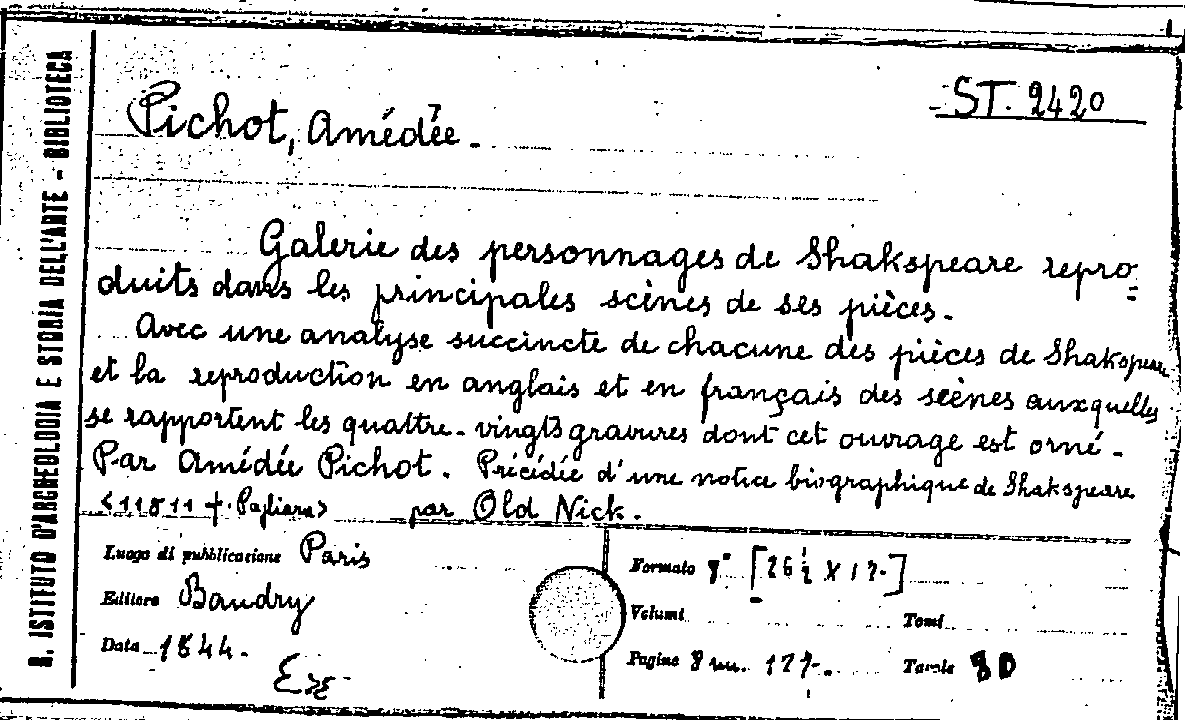 R. ISTITUTO D'ARCHEOLOGIA E STORIA DELL'ARTE - BIBLIOTECA
ST. 2420
Pichot, Amédée.
Galerie des personnages de Shakspeare repro=
duits dans les principales scènes de ses pièces.
Avec une analyse succincte de chacune des pièces de Shakspeare
et la reproduction en anglais et en français des scènes auxquelles
se rapportent les quattre-vingts gravures dont cet ouvrage est orné.
Par Amédée Pichot. Précédée d'une notice biographique de Shakspeare
<11811 + Pagliara> par Old Nick.
Luogo di pubblicazione Paris
Editore Baudry
Data 1844.
Formato 8° [26½ X 17.]
Volumi Tomi
Pagine 8 nn. 177. Tavole 80